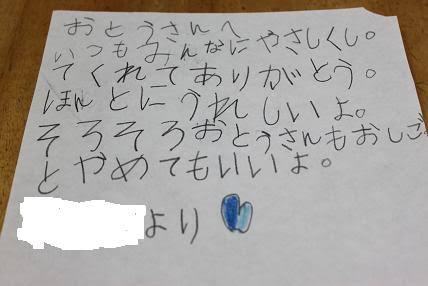 おとうさんへ
いつもみんなにやさしくし。
てくれてありがとう。
ほんとにうれしいよ。
そろそろおとうさんもおしご
とやめてもいいよ。
より